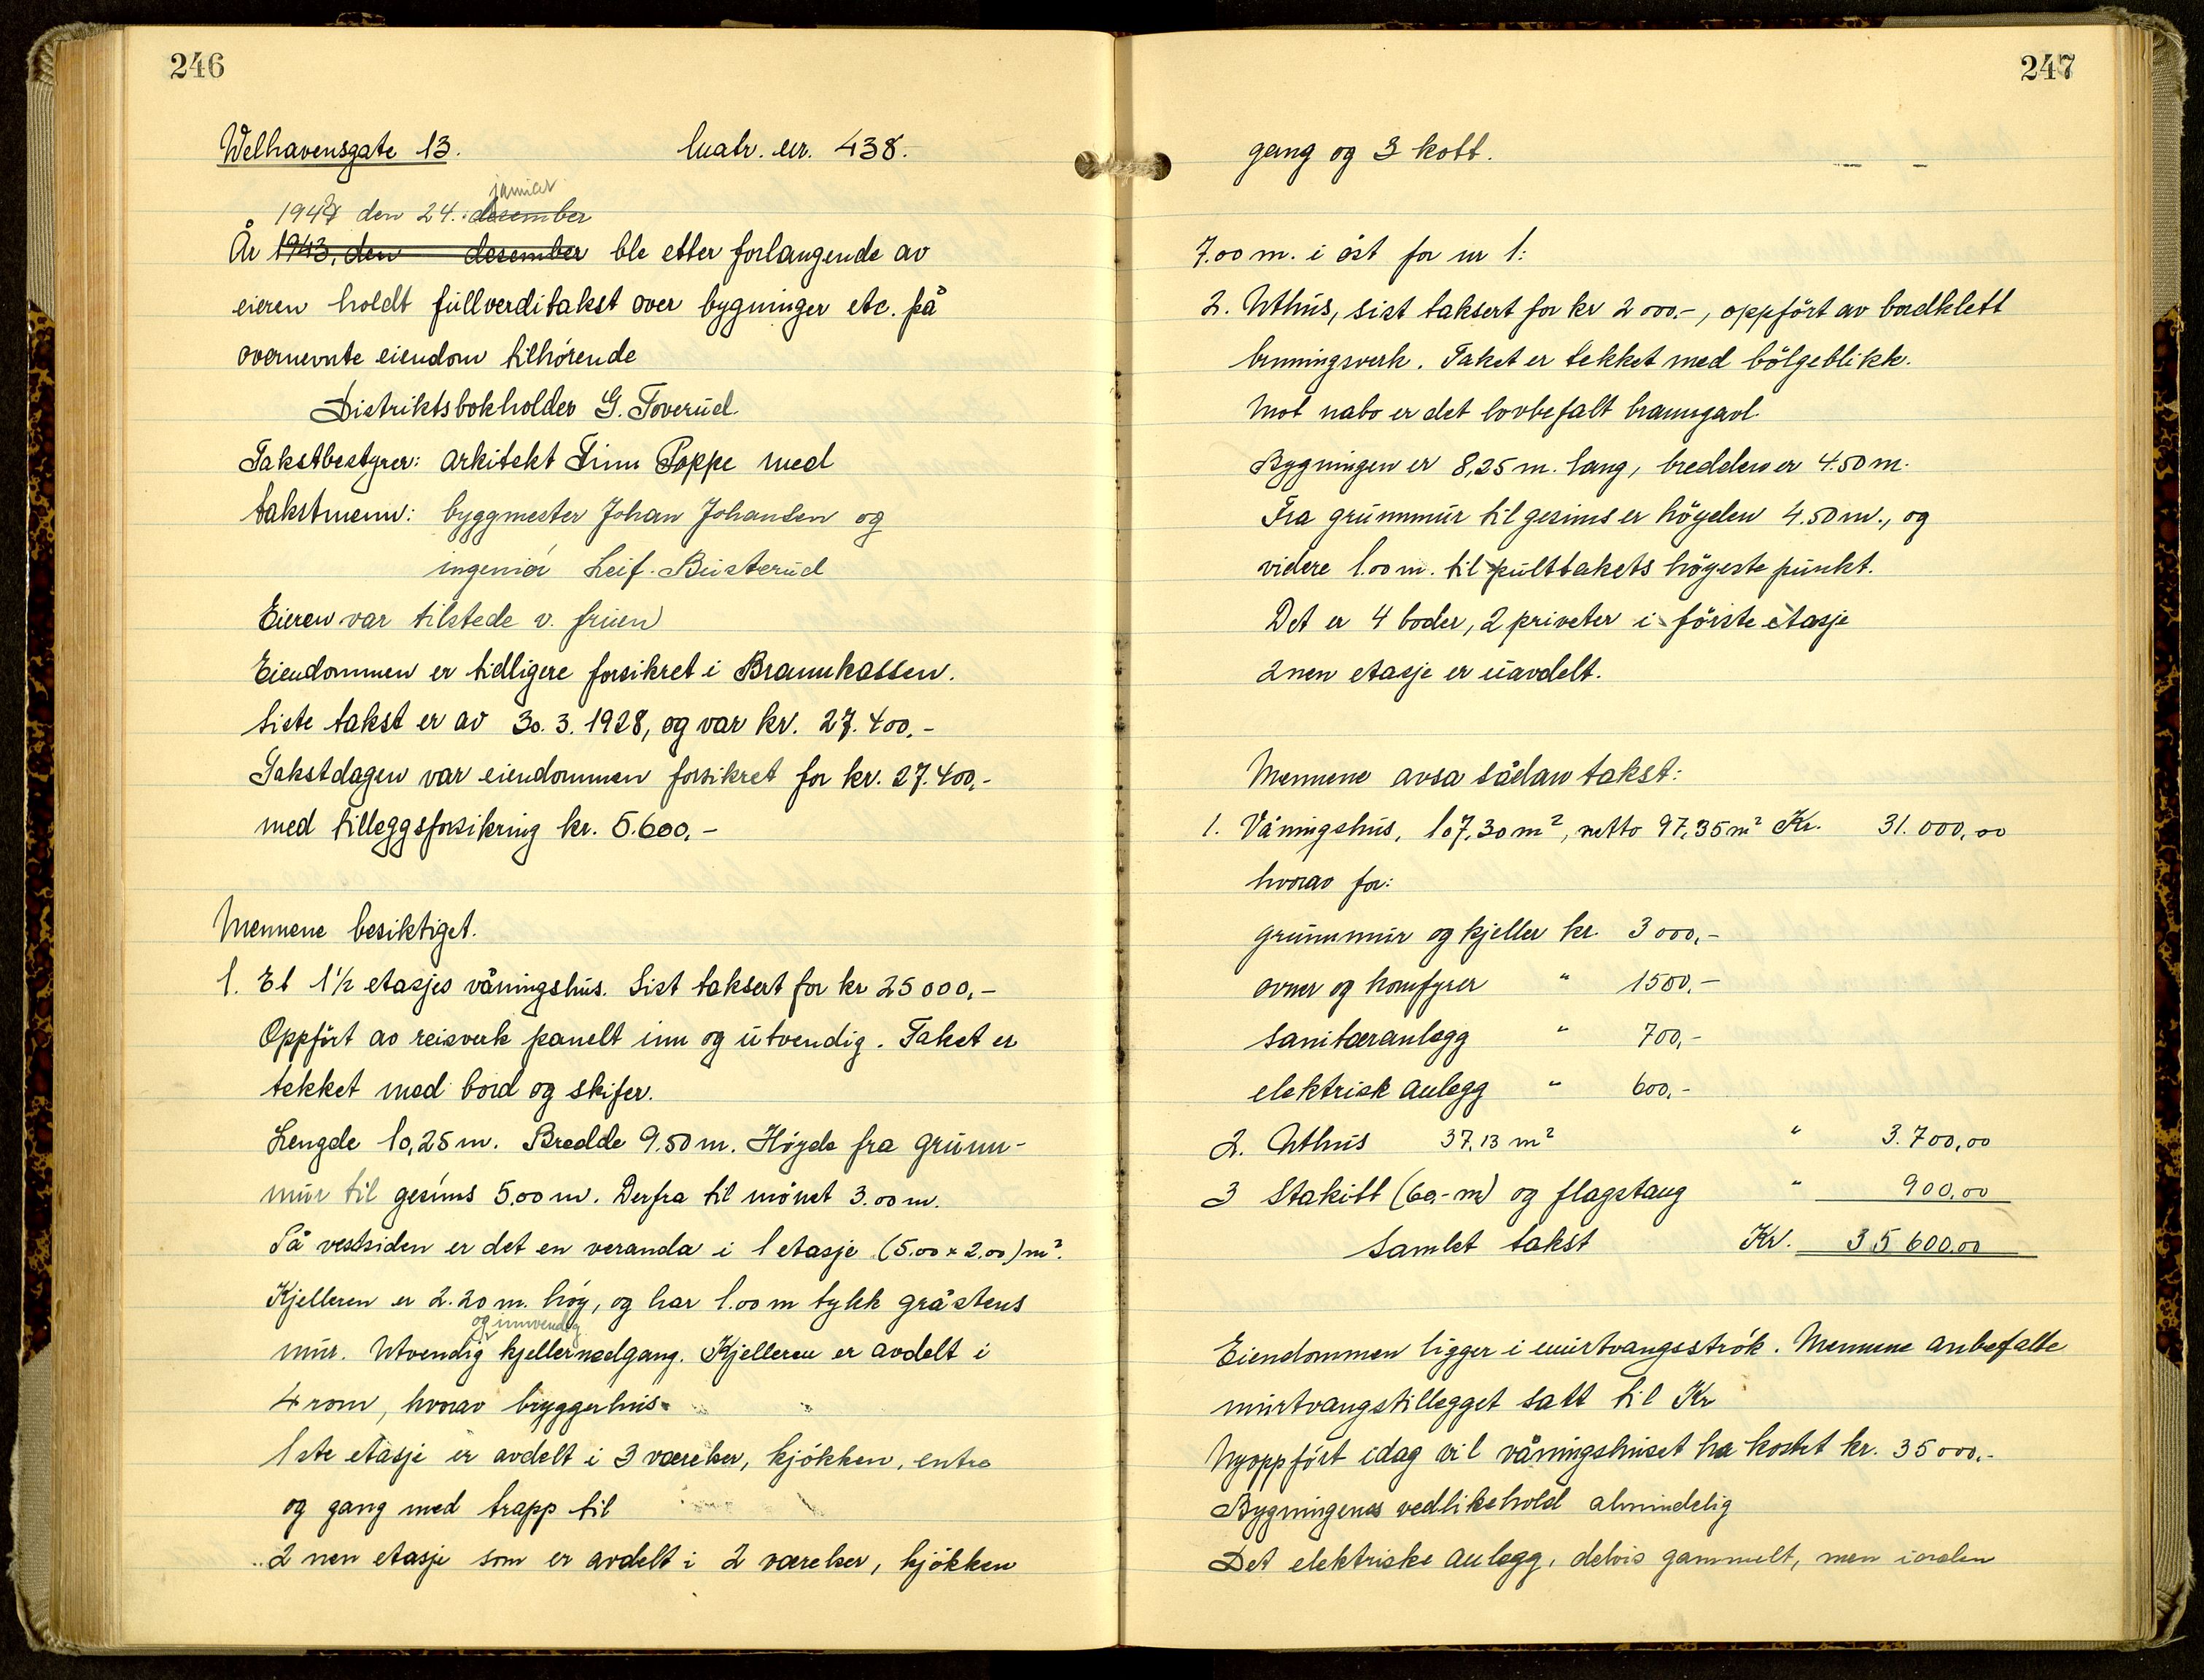 246
Welhavensgate 13. matr. nr. 438.
januar
1944 den 24. desember
År 1943, den desember ble etter forlangende av
eieren holdt fullverditakst over bygninger etc. på
overnevnte eiendom tilhørende
Distriktsbokholder G. Toverud.
Takstbestyrer: arkitekt Finn Poppe med
takstmenn: byggmester Johan Johansen og
ingeniør Leif. Busterud
Eieren var tilstede v. fruen
Eiendommen er tidligere forsikret i Brannkassen.
Siste takst er av 30.3.1928, og var kr. 27.400.-
Takstdagen var eiendommen forsikret for kr. 27.400,-
med tilleggsforsikring kr. 5.600,-
Mennene besiktiget.
1. Et 1½ etasjes våningshus. Sist taksert for kr 25 000,-
Oppført av reisverk panelt inn og utvendig. Taket er
tekket med bord og skifer.
Lengde 10,25 m. Bredde 9.50 m. Høyde fra grunn-
mur til gesims 5.00 m. Derfra til mønet 3.00 m.
På vestsiden er det en veranda i 1 etasje (5.00 x 2.00) m².
Kjelleren er 2.20 m. høy, og har 1.00 m tykk gråstens
og innvendig
mur. Utvendig kjellernedgang. Kjelleren er avdelt i
4 rom, hvorav bryggerhus.
1ste etasje er avdelt i 3 værelser, kjøkken, entre
og gang med trapp til
2 nen etasje som er avdelt i 2 værelser, kjøkken
247
gang og 3 kott.
7.00 m. i øst for nr 1:
2. Uthus, sist taksert for kr 2 000.-, oppført av bordklett
bunningsverk. Taket er tekket med bølgeblikk.
Mot nabo er det lovbefalt branngavl.
Bygningen er 8,25 m. lang, bredden er 4.50 m.
Fra grunnmur til gesims er høyden 4.50 m., og
videre 1.00 m. til pulttakets høyeste punkt.
Det er 4 boder, 2 priveter i første etasje
2nen etasje er uavdelt.
Mennene avsa sådan takst:
1. Våningshus, 107,30 m², netto 97,35 m² Kr. 31.000,00
hvorav for:
grunnmur og kjeller kr. 3 000,-
ovner og komfyrer " 1500,-
sanitæranlegg " 700,-
elektrisk anlegg " 600,-
2. Uthus 37,13 m² " 3.700,00
3 Stakitt (60,- m) og flagstang " 900,00
Samlet takst Kr. 35 600,00
Eiendommen ligger i murtvangsstrøk. Mennene anbefalte
murtvangstillegget satt til Kr
Nyoppført idag vil våningshuset ha kostet kr. 35 000.-
Bygningenes vedlikehold almindelig
Det elektriske anlegg, delvis gammelt, men iorden